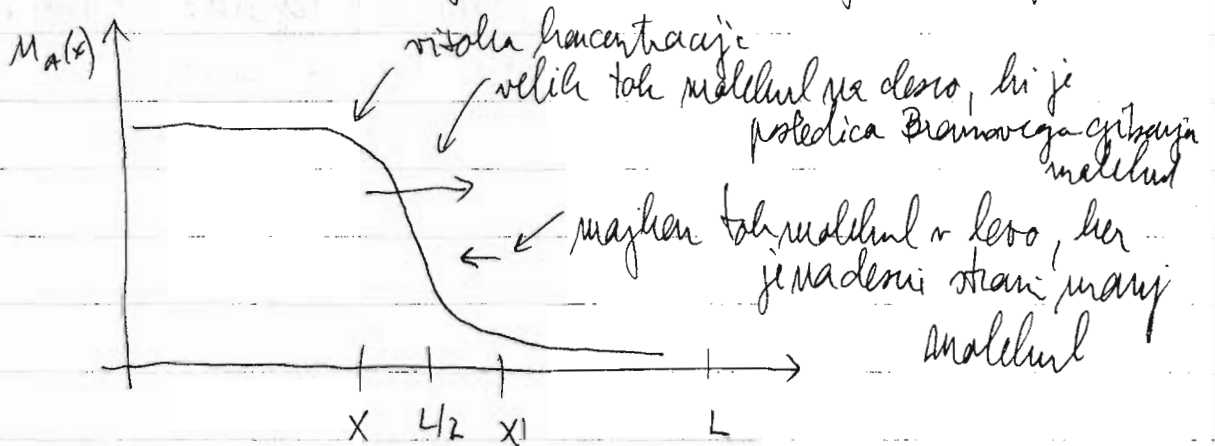 n_A(x)
visoka koncentracija
velik tok molekul na desno, ki je
posledica Brownovega gibanja
molekul
majhen tok molekul v levo, ker
je na desni strani manj
molekul
X L/2 X' L